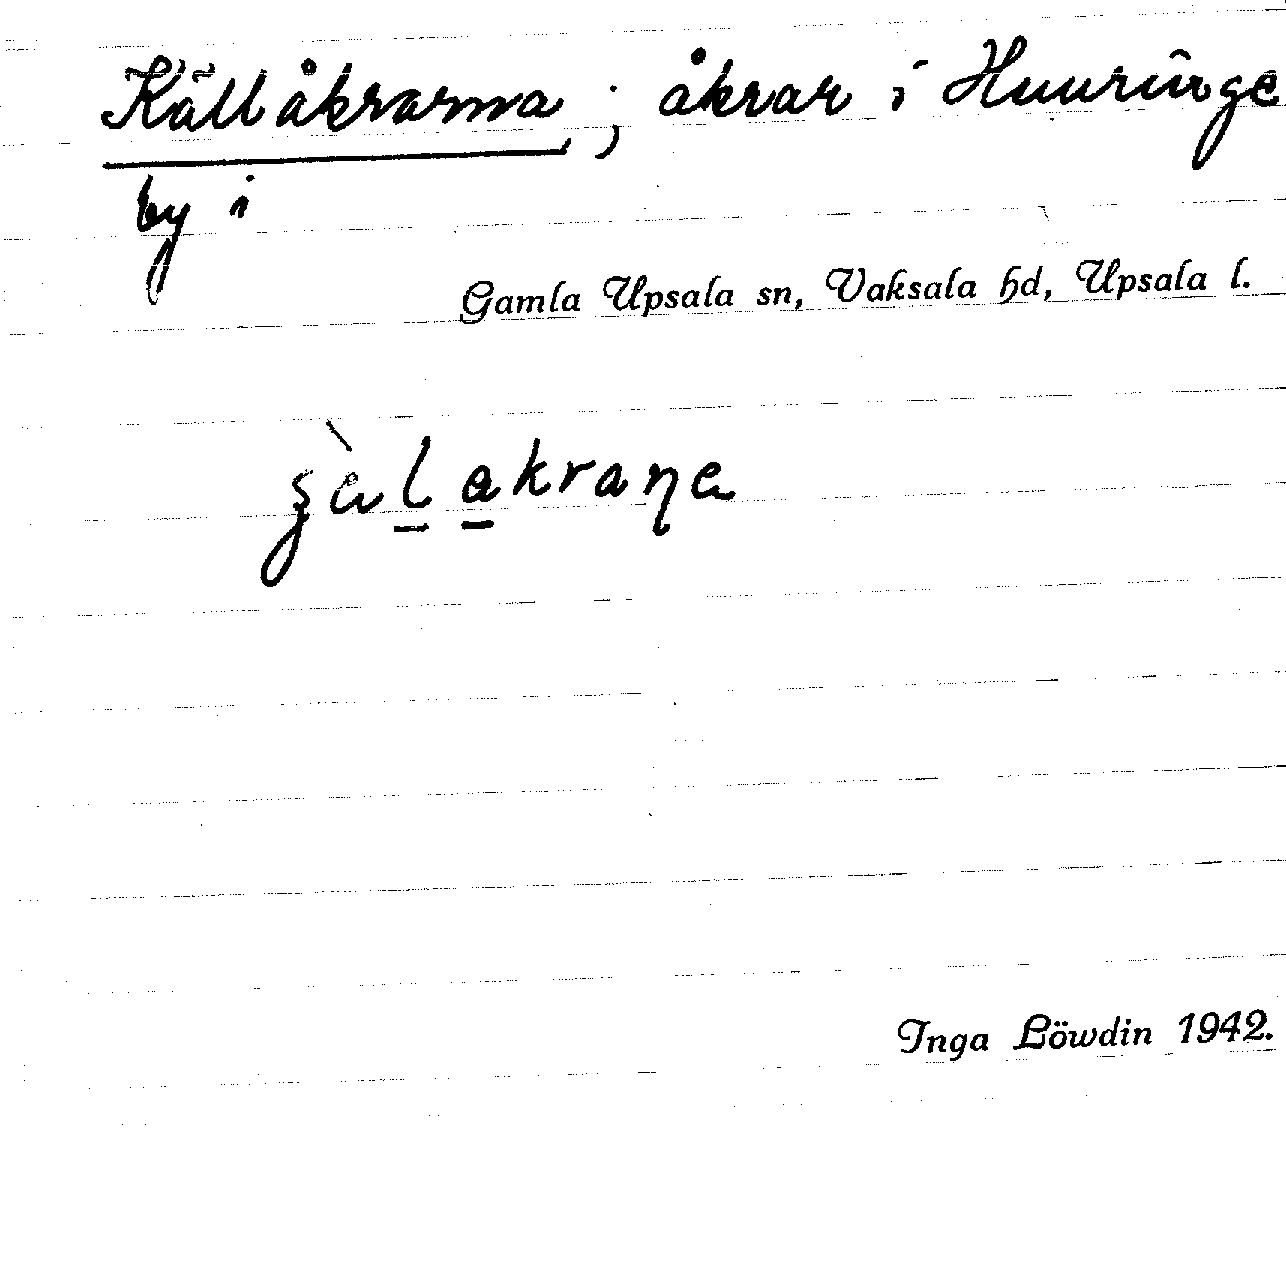 Källåkrarna; åkrar i Huvringe
by i
Gamla Upsala sn, Vaksala hd, Upsala l.
Inga Löwdin 1942.